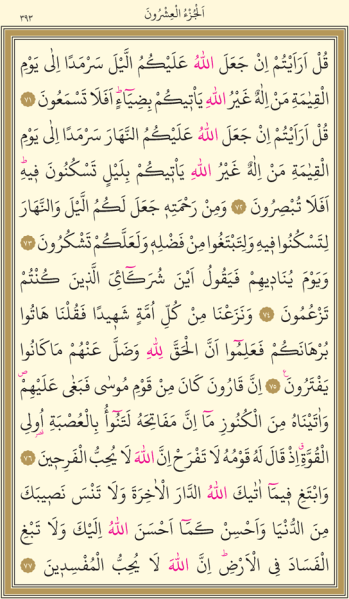 اَلْجُزْءُ الْعِشْرُونَ
٣٩٣
قُلْ اَرَاَيْتُمْ اِنْ جَعَلَ اللّٰهُ عَلَيْكُمُ الَّيْلَ سَرْمَدًا اِلٰى يَوْمِ
الْقِيٰمَةِ مَنْ اِلٰهٌ غَيْرُ اللّٰهِ يَأْتٖيكُمْ بِضِيَٓاءٍؕ اَفَلَا تَسْمَعُونَ ٧١
قُلْ اَرَاَيْتُمْ اِنْ جَعَلَ اللّٰهُ عَلَيْكُمُ النَّهَارَ سَرْمَدًا اِلٰى يَوْمِ
الْقِيٰمَةِ مَنْ اِلٰهٌ غَيْرُ اللّٰهِ يَأْتٖيكُمْ بِلَيْلٍ تَسْكُنُونَ فٖيهِؕ
اَفَلَا تُبْصِرُونَ ٧٢ وَمِنْ رَحْمَتِهٖ جَعَلَ لَكُمُ الَّيْلَ وَالنَّهَارَ
لِتَسْكُنُوا فٖيهِ وَلِتَبْتَغُوا مِنْ فَضْلِهٖ وَلَعَلَّكُمْ تَشْكُرُونَ ٧٣
وَيَوْمَ يُنَادٖيهِمْ فَيَقُولُ اَيْنَ شُرَكَٓاءِيَ الَّذٖينَ كُنْتُمْ
تَزْعُمُونَ ٧٤ وَنَزَعْنَا مِنْ كُلِّ اُمَّةٍ شَهٖيدًا فَقُلْنَا هَاتُوا
بُرْهَانَكُمْ فَعَلِمُٓوا اَنَّ الْحَقَّ لِلّٰهِ وَضَلَّ عَنْهُمْ مَا كَانُوا
يَفْتَرُونَ ٧٥ اِنَّ قَارُونَ كَانَ مِنْ قَوْمِ مُوسٰى فَبَغٰى عَلَيْهِمْۖ
وَاٰتَيْنَاهُ مِنَ الْكُنُوزِ مَٓا اِنَّ مَفَاتِحَهُ لَتَنُٓوأُ بِالْعُصْبَةِ اُولِى
الْقُوَّةِۗ اِذْ قَالَ لَهُ قَوْمُهُ لَا تَفْرَحْ اِنَّ اللّٰهَ لَا يُحِبُّ الْفَرِحٖينَ ٧٦
وَابْتَغِ فٖيمَٓا اٰتٰيكَ اللّٰهُ الدَّارَ الْاٰخِرَةَ وَلَا تَنْسَ نَصٖيبَكَ
مِنَ الدُّنْيَا وَاَحْسِنْ كَمَٓا اَحْسَنَ اللّٰهُ اِلَيْكَ وَلَا تَبْغِ
الْفَسَادَ فِى الْاَرْضِؕ اِنَّ اللّٰهَ لَا يُحِبُّ الْمُفْسِدٖينَ ٧٧